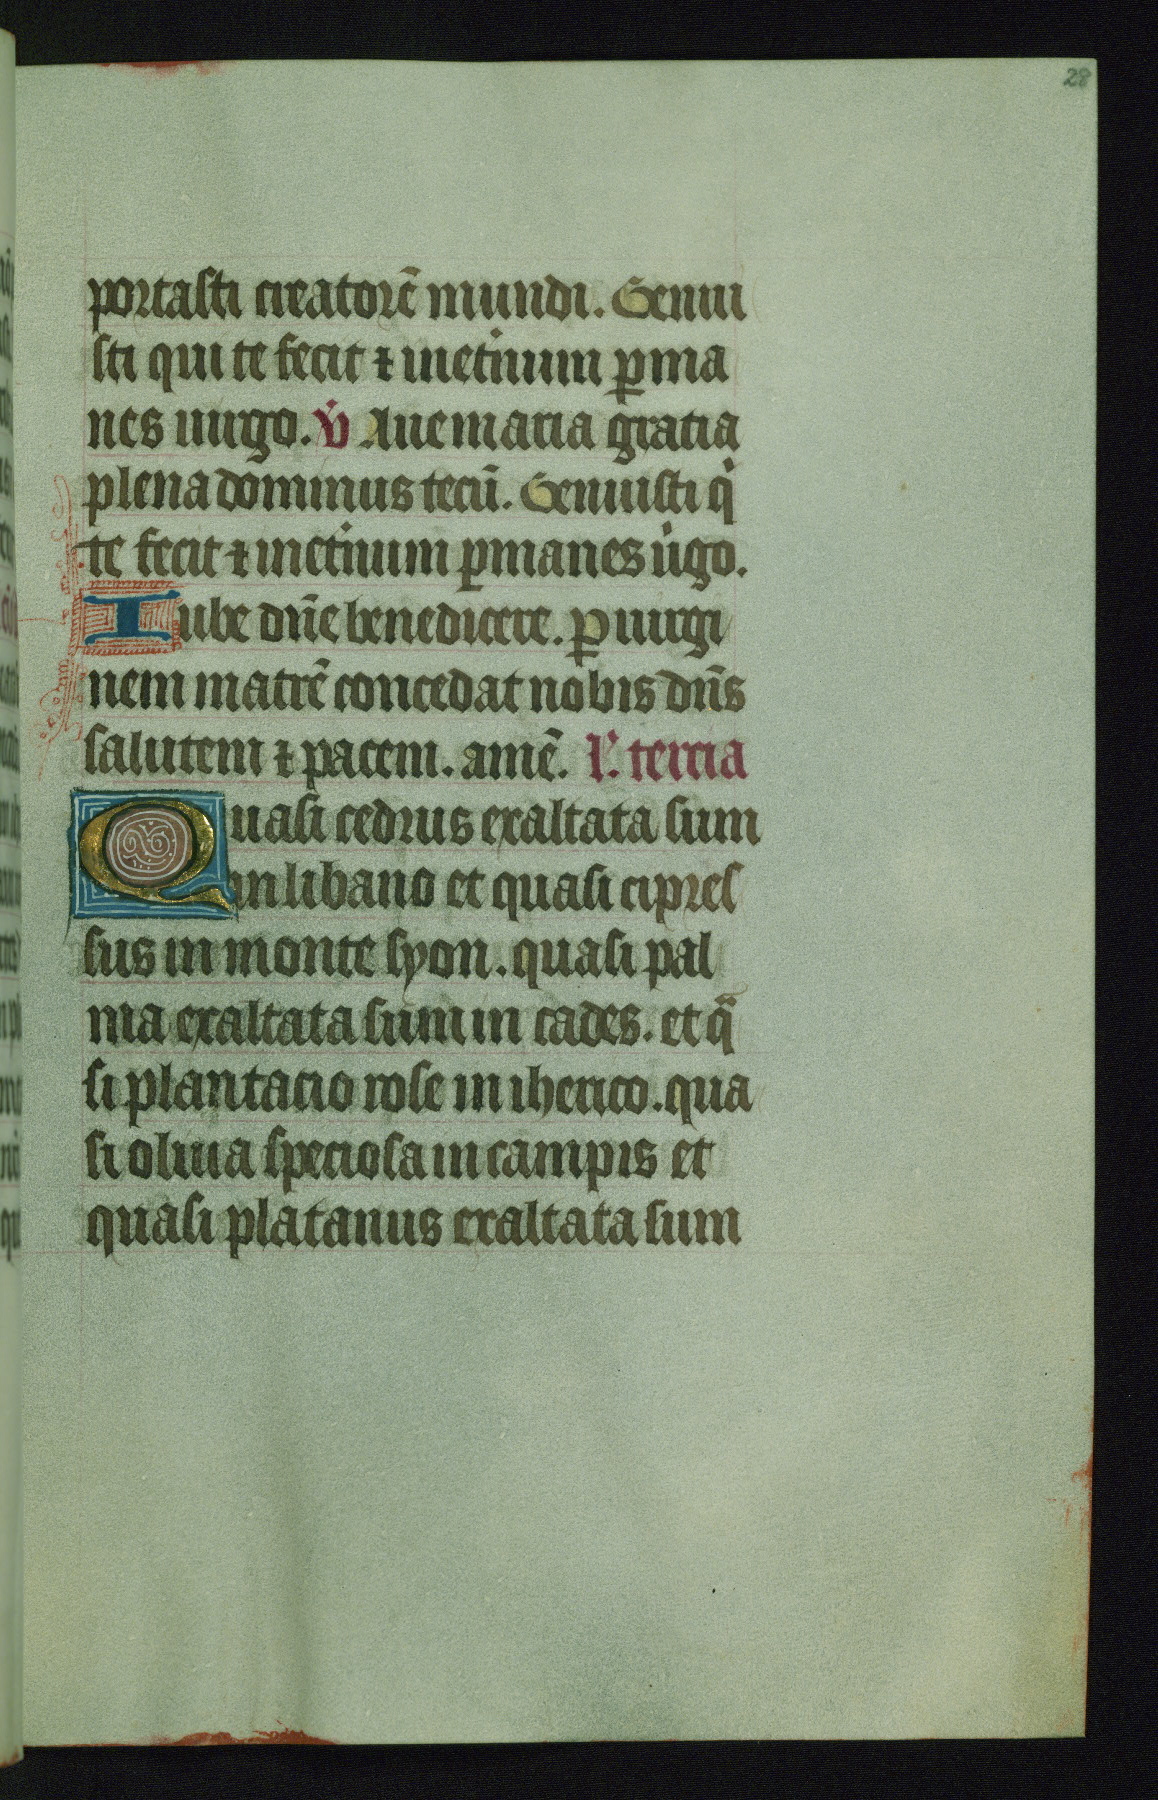 28
portasti creatorē mundi. Genui
sti qui te fecit ⁊ inet̓num ꝑma
nes uirgo. v̓ Aue maria gratia
plena dominus tecū. Genuisti q̓
te fecit ⁊ inet̓num ꝑmanes u̓go.
Iube dn̄e benedicere. ꝑ uirgi
nem matrē concedat nobis dn̄s
salutem ⁊ pacem. amē. l'. tercia
Quasi cedrus exaltata sum
in libano et quasi cipres
sus in monte syon. quasi pal
ma exaltata sum in cades. et q̄
si plantacio rose in iherico. qua
si oliua speciosa in campis et
quasi platanus exaltata sum